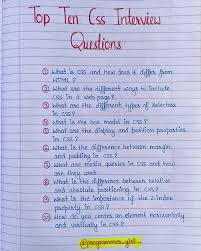 Top Ten Css Interview
Questions
① What is CSS and how does it differ from
HTML ?
② What are the different ways to include
CSS in a web page?
③ What are the different types of selectors
in CSS?
④ What is the box model in CSS?
⑤ What are the display and position properties
in CSS?
⑥ What is the difference between margin
and padding in CSS?
⑦ What are media queries in CSS and how
are they used
⑧ What is the difference between relative
and absolute positioning in CSS?
⑨ What is the importance of the z-index
property in CSS?
⑩ How do you center an element horizontally
and vertically in CSS?
@programmer_girl_